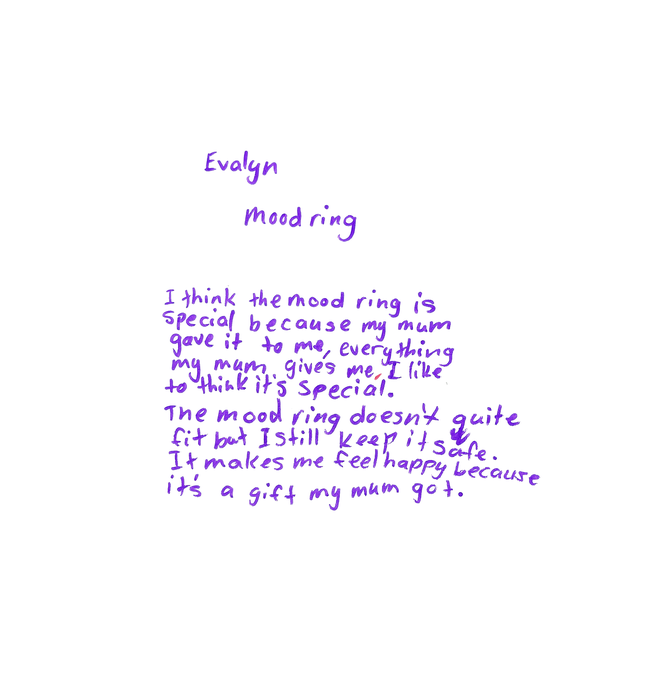 Evalyn
Mood ring
I think the mood ring is
special because my mum
gave it to me, everything
my mum gives me, I like
to think it's special.
The mood ring doesn't quite
fit but I still keep it safe.
It makes me feel happy because
it's a gift my mum got.